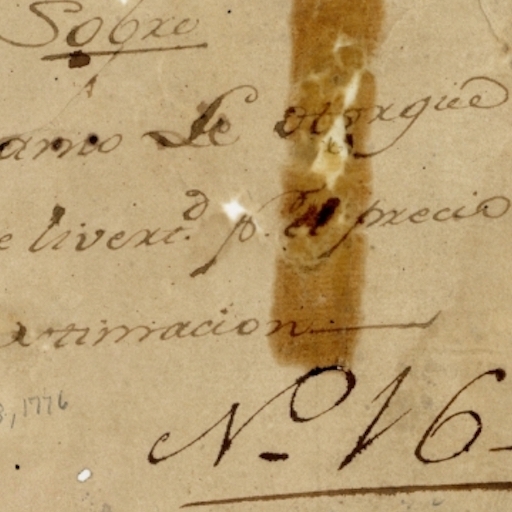 Sobre
amo Se otorgue
e livert.d p.r el precio
extimacion
8, 1776
No. 16